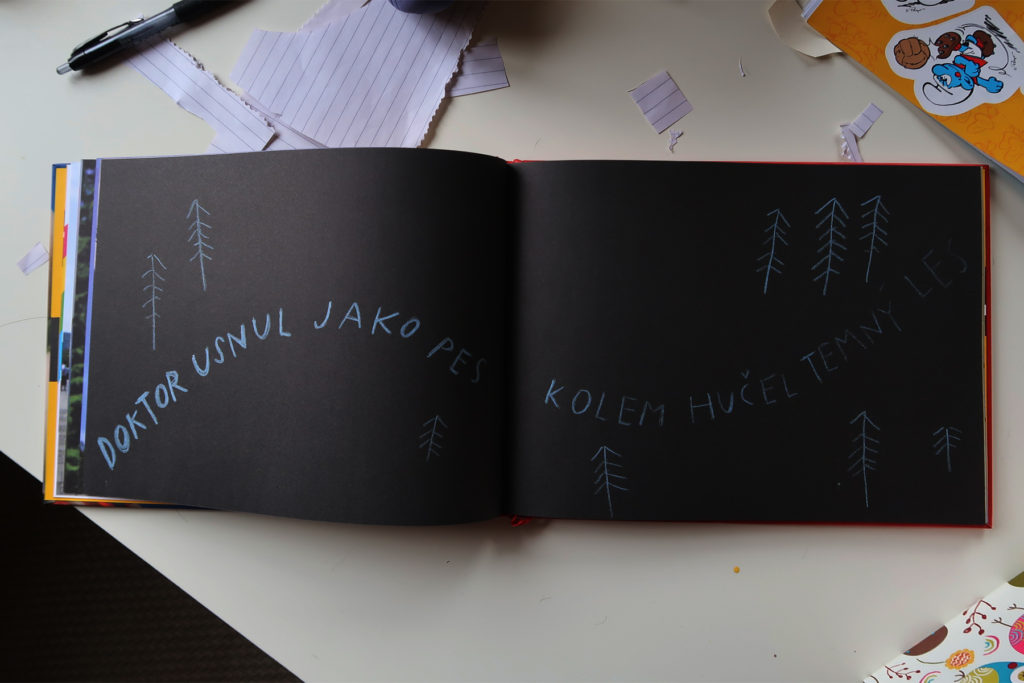 DOKTOR USNUL JAKO PES
KOLEM HUČEL TEMNÝ LES